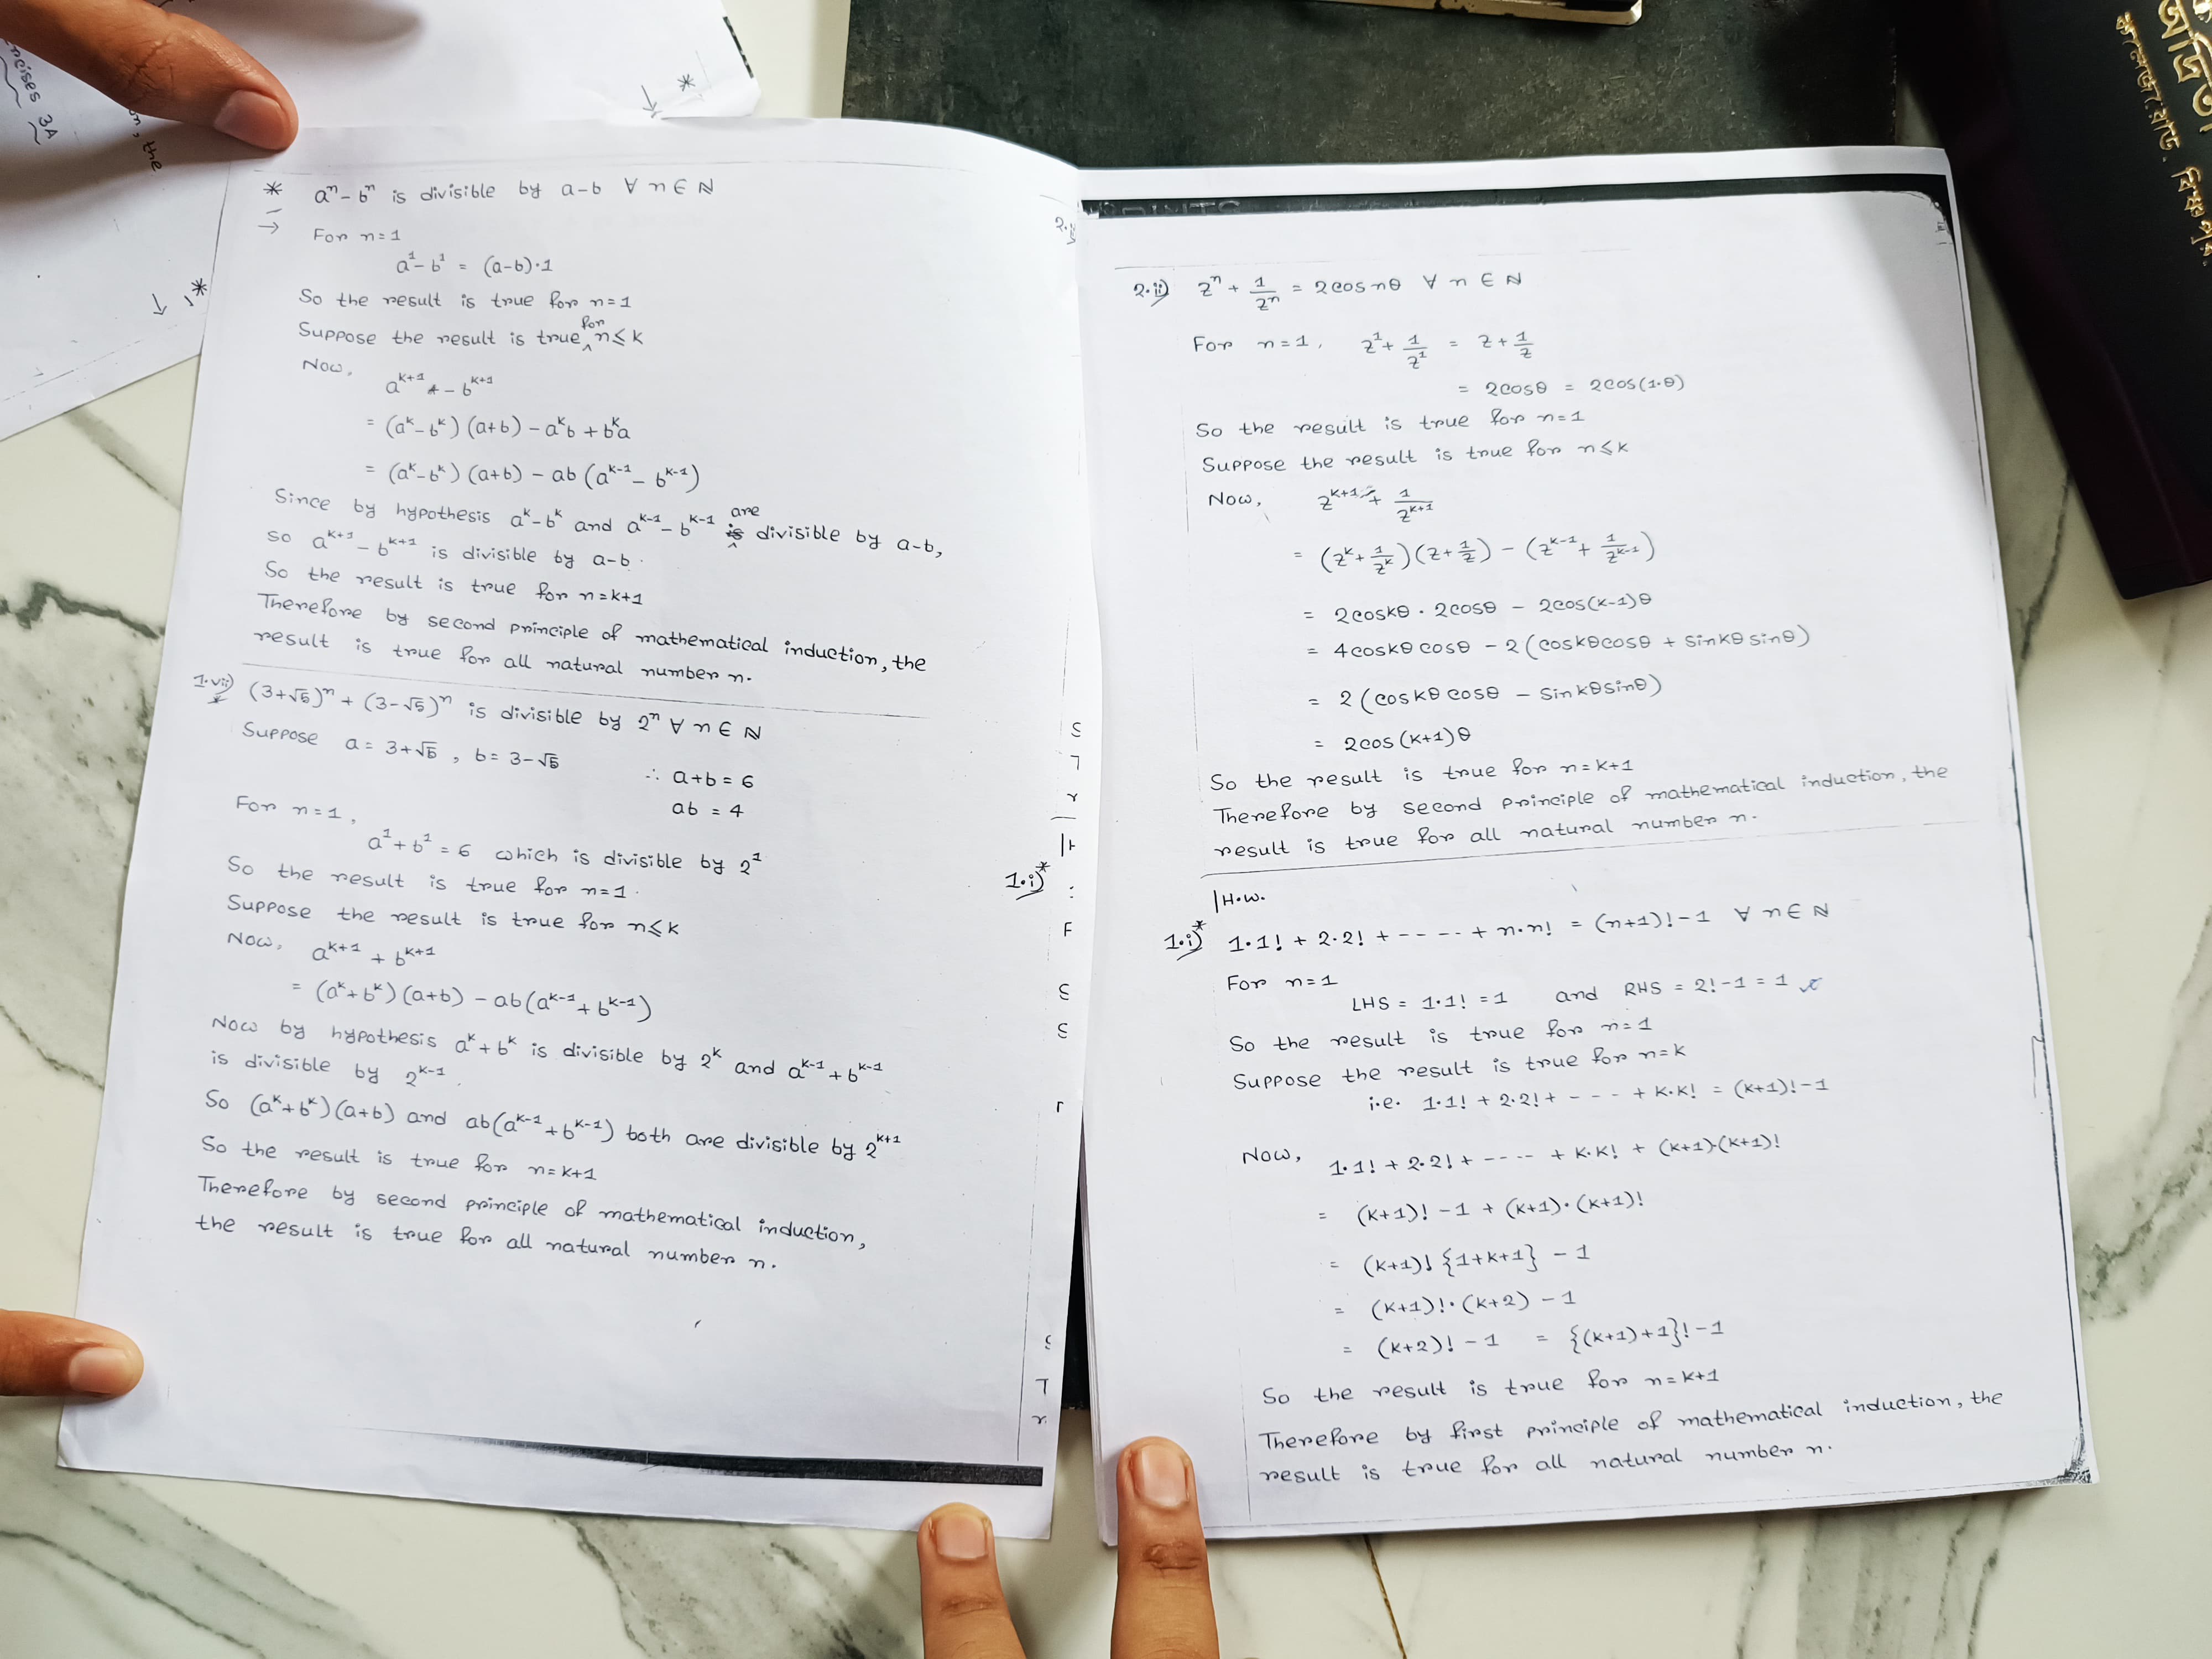 ercises 3A
n, the
*
* aⁿ - bⁿ is divisible by a-b ∀ n ∈ ℕ
→ For n=1
a¹ - b¹ = (a-b)·1
So the result is true for n=1
Suppose the result is true for n≤k
Now, aᵏ⁺¹ - bᵏ⁺¹
= (aᵏ - bᵏ)(a+b) - aᵏb + bᵏa
= (aᵏ - bᵏ)(a+b) - ab(aᵏ⁻¹ - bᵏ⁻¹)
Since by hypothesis aᵏ - bᵏ and aᵏ⁻¹ - bᵏ⁻¹ are divisible by a-b,
so aᵏ⁺¹ - bᵏ⁺¹ is divisible by a-b.
So the result is true for n=k+1
Therefore by second principle of mathematical induction, the
result is true for all natural number n.
1.vii) (3+√5)ⁿ + (3-√5)ⁿ is divisible by 2ⁿ ∀ n ∈ ℕ
* Suppose a = 3+√5, b = 3-√5
∴ a+b = 6
ab = 4
For n=1,
a¹ + b¹ = 6 which is divisible by 2¹
So the result is true for n=1.
Suppose the result is true for n≤k
Now, aᵏ⁺¹ + bᵏ⁺¹
= (aᵏ + bᵏ)(a+b) - ab(aᵏ⁻¹ + bᵏ⁻¹)
Now by hypothesis aᵏ + bᵏ is divisible by 2ᵏ and aᵏ⁻¹ + bᵏ⁻¹
is divisible by 2ᵏ⁻¹.
So (aᵏ + bᵏ)(a+b) and ab(aᵏ⁻¹ + bᵏ⁻¹) both are divisible by 2ᵏ⁺¹
So the result is true for n=k+1
Therefore by second principle of mathematical induction,
the result is true for all natural number n.
1.i)*
2.ii) zⁿ + 1/zⁿ = 2cosnθ ∀ n ∈ ℕ
For n=1, z¹ + 1/z¹ = z + 1/z
= 2cosθ = 2cos(1·θ)
So the result is true for n=1
Suppose the result is true for n≤k
Now, zᵏ⁺¹ + 1/zᵏ⁺¹
= (zᵏ + 1/zᵏ)(z + 1/z) - (zᵏ⁻¹ + 1/zᵏ⁻¹)
= 2coskθ · 2cosθ - 2cos(k-1)θ
= 4coskθ cosθ - 2(coskθcosθ + sinkθ sinθ)
= 2(coskθ cosθ - sinkθsinθ)
= 2cos(k+1)θ
So the result is true for n=k+1
Therefore by second principle of mathematical induction, the
result is true for all natural number n.
H.W.
1.i)* 1·1! + 2·2! + ----- + n·n! = (n+1)! - 1 ∀ n ∈ ℕ
For n=1
LHS = 1·1! = 1 and RHS = 2! - 1 = 1
So the result is true for n=1
Suppose the result is true for n=k
i.e. 1·1! + 2·2! + --- + k·k! = (k+1)! - 1
Now, 1·1! + 2·2! + ---- + k·k! + (k+1)·(k+1)!
= (k+1)! - 1 + (k+1)·(k+1)!
= (k+1)! {1+k+1} - 1
= (k+1)!·(k+2) - 1
= (k+2)! - 1 = {(k+1)+1}! - 1
So the result is true for n=k+1
Therefore by first principle of mathematical induction, the
result is true for all natural number n.